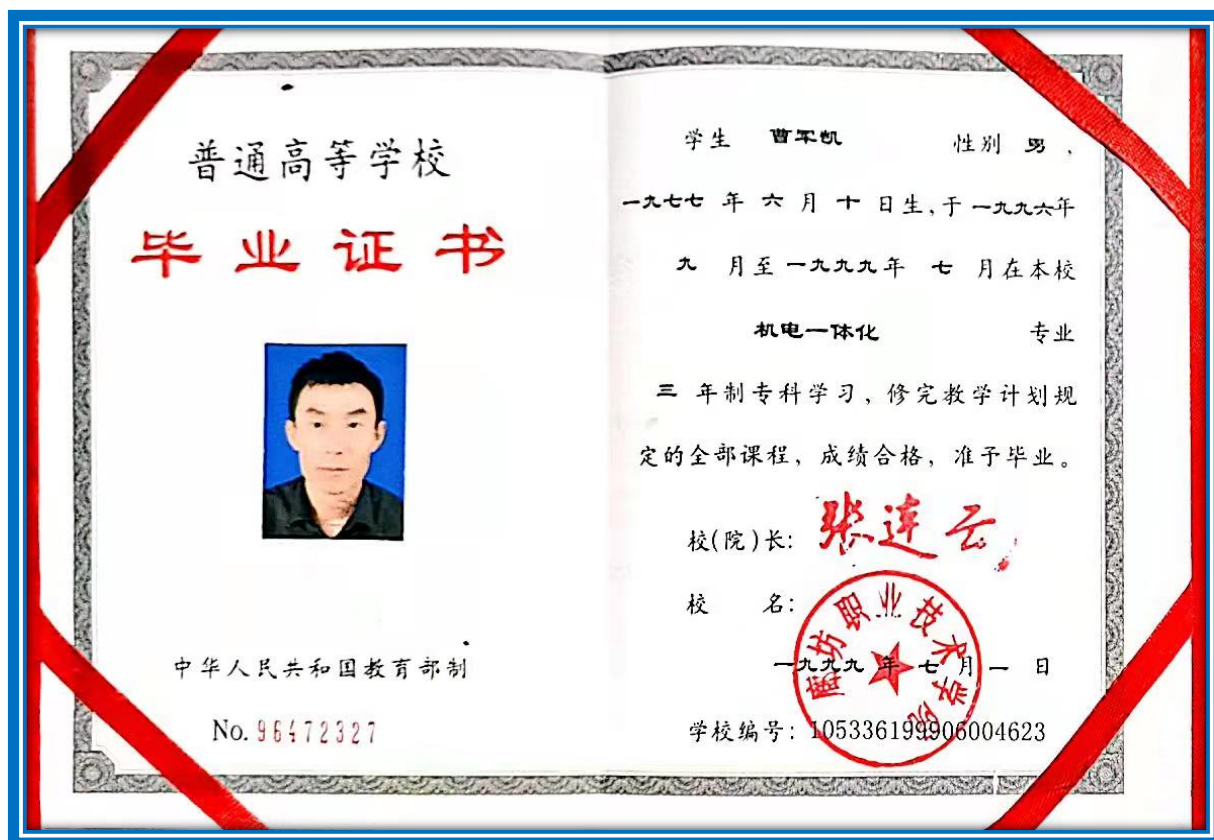 普通高等学校
毕业证书
中华人民共和国教育部制
No. 96472327
学生 曹军凯 性别 男，
一九七七 年 六 月 十 日生，于 一九九六年
九 月至 一九九九年 七 月在本校
机电一体化 专业
三 年制专科学习，修完教学计划规
定的全部课程，成绩合格，准予毕业。
校(院)长: 张连云
校 名:
廊坊职业技术学院
一九九九 年 七 月 一 日
学校编号: 105336199906004623